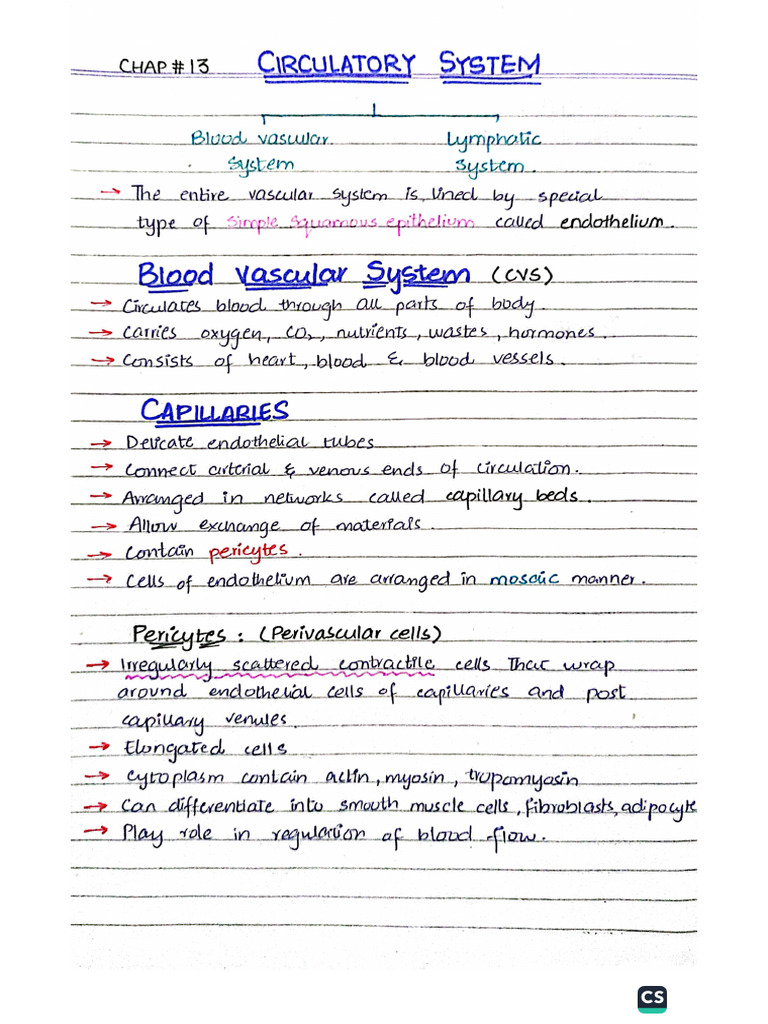 CHAP # 13 CIRCULATORY SYSTEM
Blood vascular Lymphatic
System System.
→ The entire vascular system is lined by special
type of simple squamous epithelium called endothelium.
Blood Vascular System (CVS)
→ Circulates blood through all parts of body.
→ Carries oxygen, CO₂, nutrients, wastes, hormones.
→ Consists of heart, blood & blood vessels.
CAPILLARIES
→ Delicate endothelial tubes
→ Connect arterial & venous ends of circulation.
→ Arranged in networks called capillary beds.
→ Allow exchange of materials.
→ Contain pericytes.
→ Cells of endothelium are arranged in mosaic manner.
Pericytes : (Perivascular cells)
→ Irregularly scattered contractile cells That wrap
around endothelial cells of capillaries and post
capillary venules.
→ Elongated cells
→ Cytoplasm contain actin, myosin, tropomyosin
→ Can differentiate into smooth muscle cells, fibroblasts, adipocyte
→ Play role in regulation of blood flow.
CS